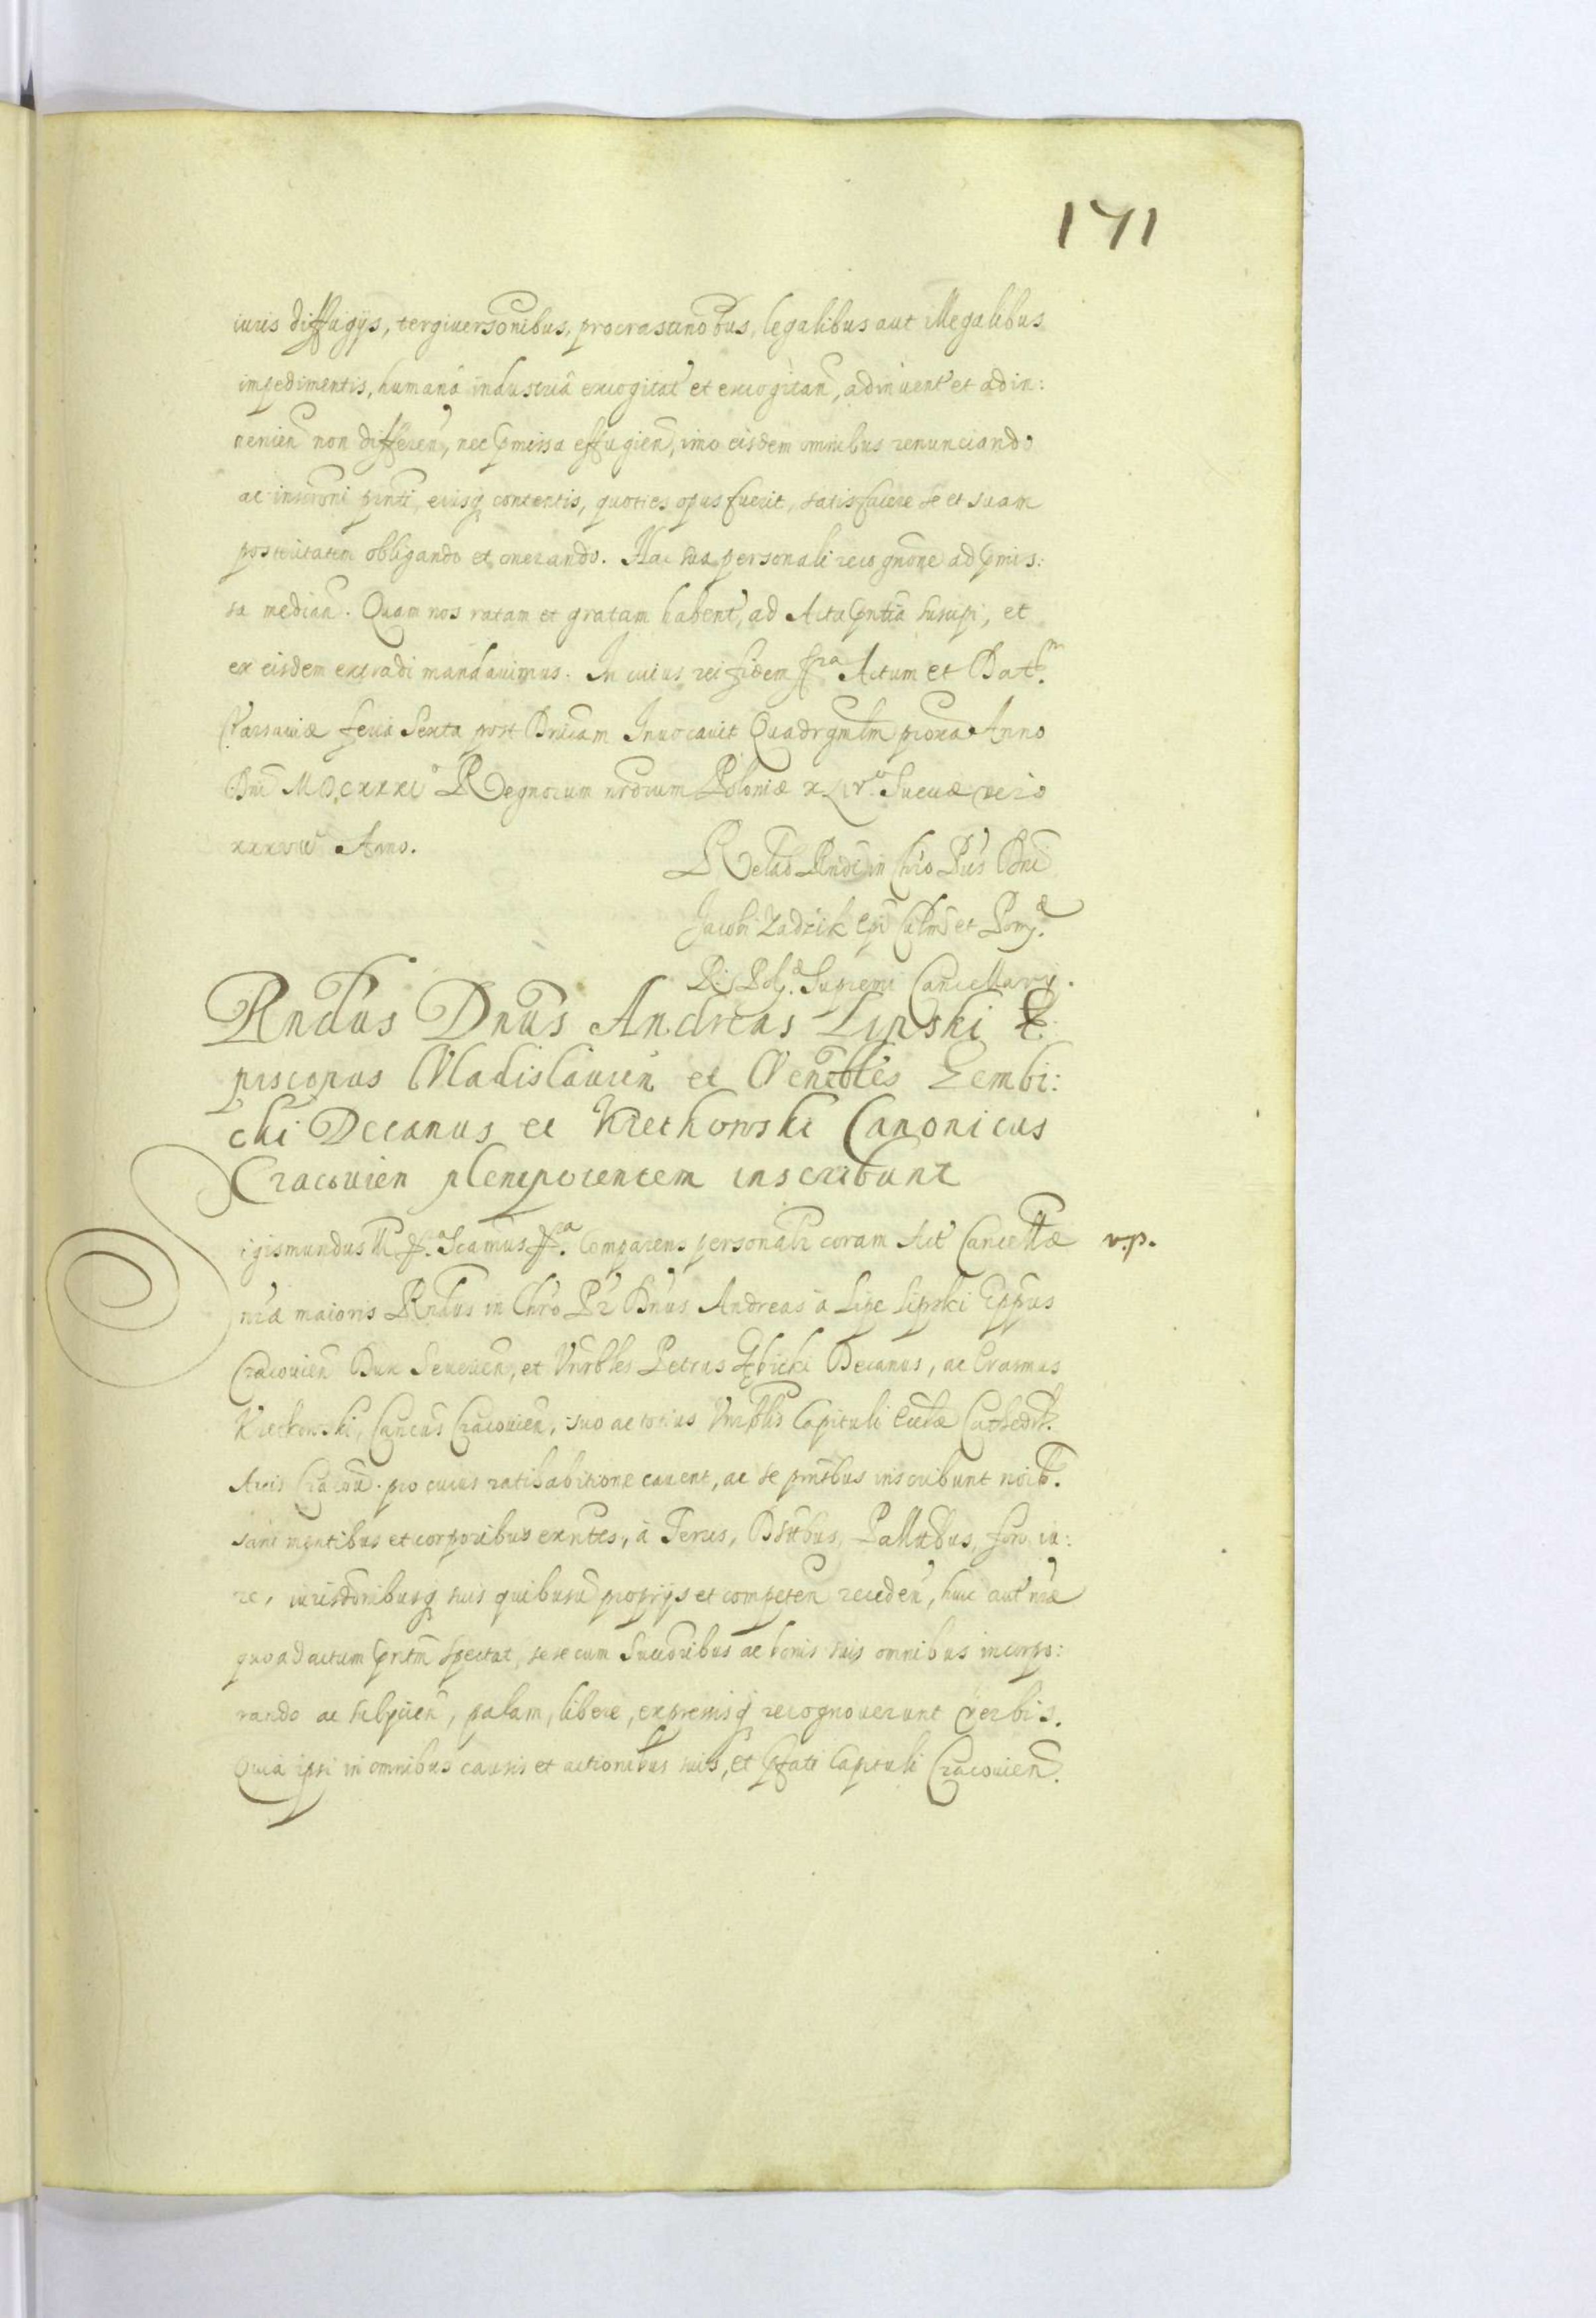 171
iuris diffugijs, tergiuersõnibus, procrastinõbus, legalibus aut illegalibus
impedimentis, humanâ industriâ excogitat' et excogitan̄, adinuent' et adin:
uenien̄ non differen̄, nec p̄missa effugien̄, imo eisdem omnibus renunciando
ac inscrōni pn̄ti, eiusq̨ contentis, quoties opus fuerit, satisfacere se et suam
posteritatem obligando et onerando. Hac sua personali recognōne ad p̄mis:
sa median̄. Quam nos ratam et gratam habent', ad Acta p̄ntia suscipi, et
ex eisdem extradi mandauimus. In cuius rei fidem ff.ra Actum et Dat.m
Varsauiæ feria Sexta post Dn̄icam Inuocauit Quadrgm̄lm proxa Anno
Dn̄i MDCXXXIo Regnorum nr̄orum Poloniæ XLIV.o Sueciæ vero
xxxviio Anno.
Relão Rn̄di in Chr̄o P̄ris Dn̄i
Jacobi Zadzik Ep̄i Culm̄ et Pom.æ
R. Pol.æ Supremi Cancellarij.
Rndus Dn̄us Andreas Lipski E
piscopus Vladislauien̄ et Venebles Gembi:
cki Decanus et Kretkowski Canonicus
Cracouien plenipotentem inscribunt
Sigismundus III ff.a Scamus ff.ra Comparens personalr coram Act' Cancellæ v.p.
nr̄æ maioris Rn̄dus in Chr̄o Pr̄ Dn̄us Andreas à Lipe Lipski Ep̄pus
Cracouien̄ Dux Seuerien̄, et Vnr̄bles Petrus Gębicki Decanus, ac Erasmus
Kretkowski, Can̄cus Cracouien̄, suo ac totius Vnr̄blis Capituli Eccl̄æ Cathedr̄.
Arcis Cracou̅. pro cuius ratihabitione cauent, ac se pn̄tbus inscribunt noīe.
sani mentibus et corporibus exn̄tes, à Terris, Distbus, Pallatbus, foro iu:
re, iurisdōnibusq̨ suis quibusu̅ proprijs et competen̄ receden̄, huic aut' nr̄æ
quoad actum p̄ntm̄ spectat, sese cum Succōribus ac bonis suis omnibus incorpo:
rando ac subijcien̄, palam, libere, expressisq̨ recognouerunt verbis.
Quia ipsi in omnibus causis et actionibus suis, et p̄fati Capituli Cracouien̄.